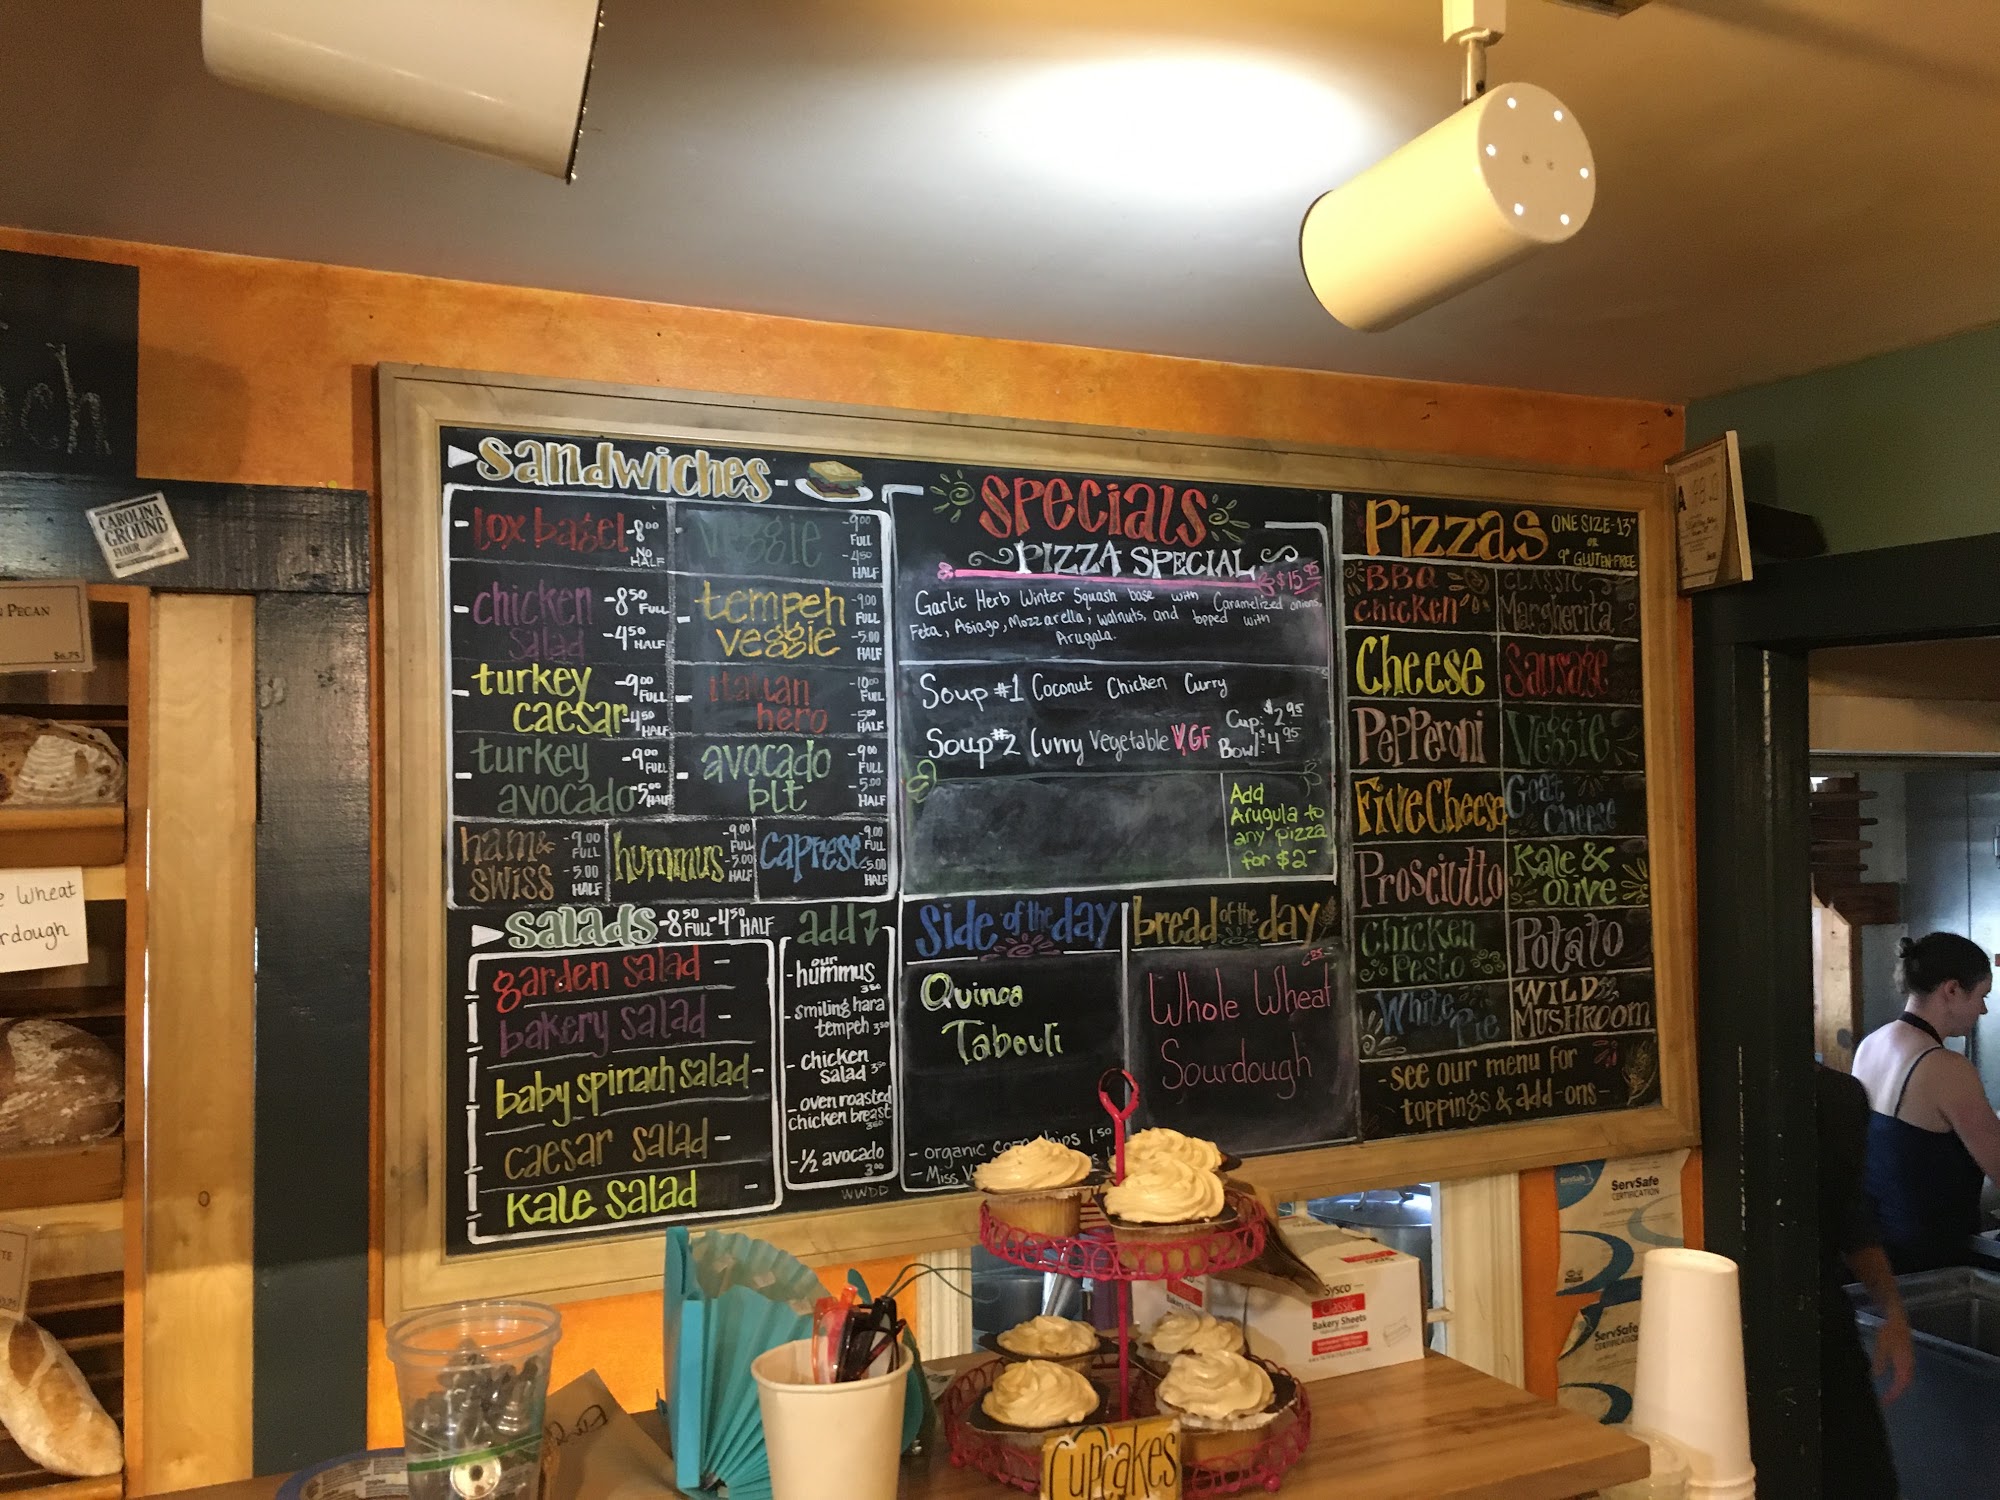 ich
CAROLINA
GROUND
FLOUR
PECAN
$6.75
Wheat
rdough
Sandwiches-
lox bagel -8⁰⁰
NO
HALF
chicken -8⁵⁰ FULL
salad -4⁵⁰ HALF
turkey -9⁰⁰ FULL
caesar -4⁵⁰ HALF
turkey -9⁰⁰ FULL
avocado -5⁰⁰ HALF
veggie -9⁰⁰ FULL
-4⁵⁰ HALF
tempeh -9.00 FULL
veggie -5.00 HALF
italian -10⁰⁰ FULL
hero -5⁵⁰ HALF
avocado -9⁰⁰ FULL
blt -5.00 HALF
ham & -9.00 FULL
swiss -5.00 HALF
hummus -9⁰⁰ FULL
-5.00 HALF
caprese -9.00 FULL
-5.00 HALF
Salads -8⁵⁰ FULL -4⁵⁰ HALF
garden salad -
bakery salad -
baby spinach salad -
caesar salad -
kale salad -
add
- our
hummus
3⁵⁰
- smiling hara
tempeh 3⁵⁰
- chicken
salad 3⁵⁰
- oven roasted
chicken breast
3⁶⁰
- ½ avocado
3⁰⁰
WWDD
Specials
PIZZA SPECIAL
$15.95
Garlic Herb Winter Squash base with Caramelized onions,
Feta, Asiago, Mozzarella, walnuts, and topped with
Arugala.
Soup #1 Coconut Chicken Curry
Soup #2 Curry Vegetable V, GF
Cup: $2.95
Bowl: $4.95
Add
Arugula to
any pizza
for $2-
Side of the day
Quinoa
Tabouli
- organic corn chips 1.50
- Miss
bread of the day
Whole Wheat
Sourdough
Pizzas ONE SIZE-13"
OR
9" GLUTEN-FREE
BBQ
chicken
CLASSIC
Margherita
Cheese
Sausage
Pepperoni
Veggie
Five Cheese
Goat
Cheese
Prosciutto
Kale &
olive
Chicken
Pesto
Potato
White
Pie
WILD
MUSHROOM
-see our menu for
toppings & add-ons-
A
ServSafe
CERTIFICATION
ServSafe
CERTIFICATION
Sysco
Classic
Bakery Sheets
Cupcakes